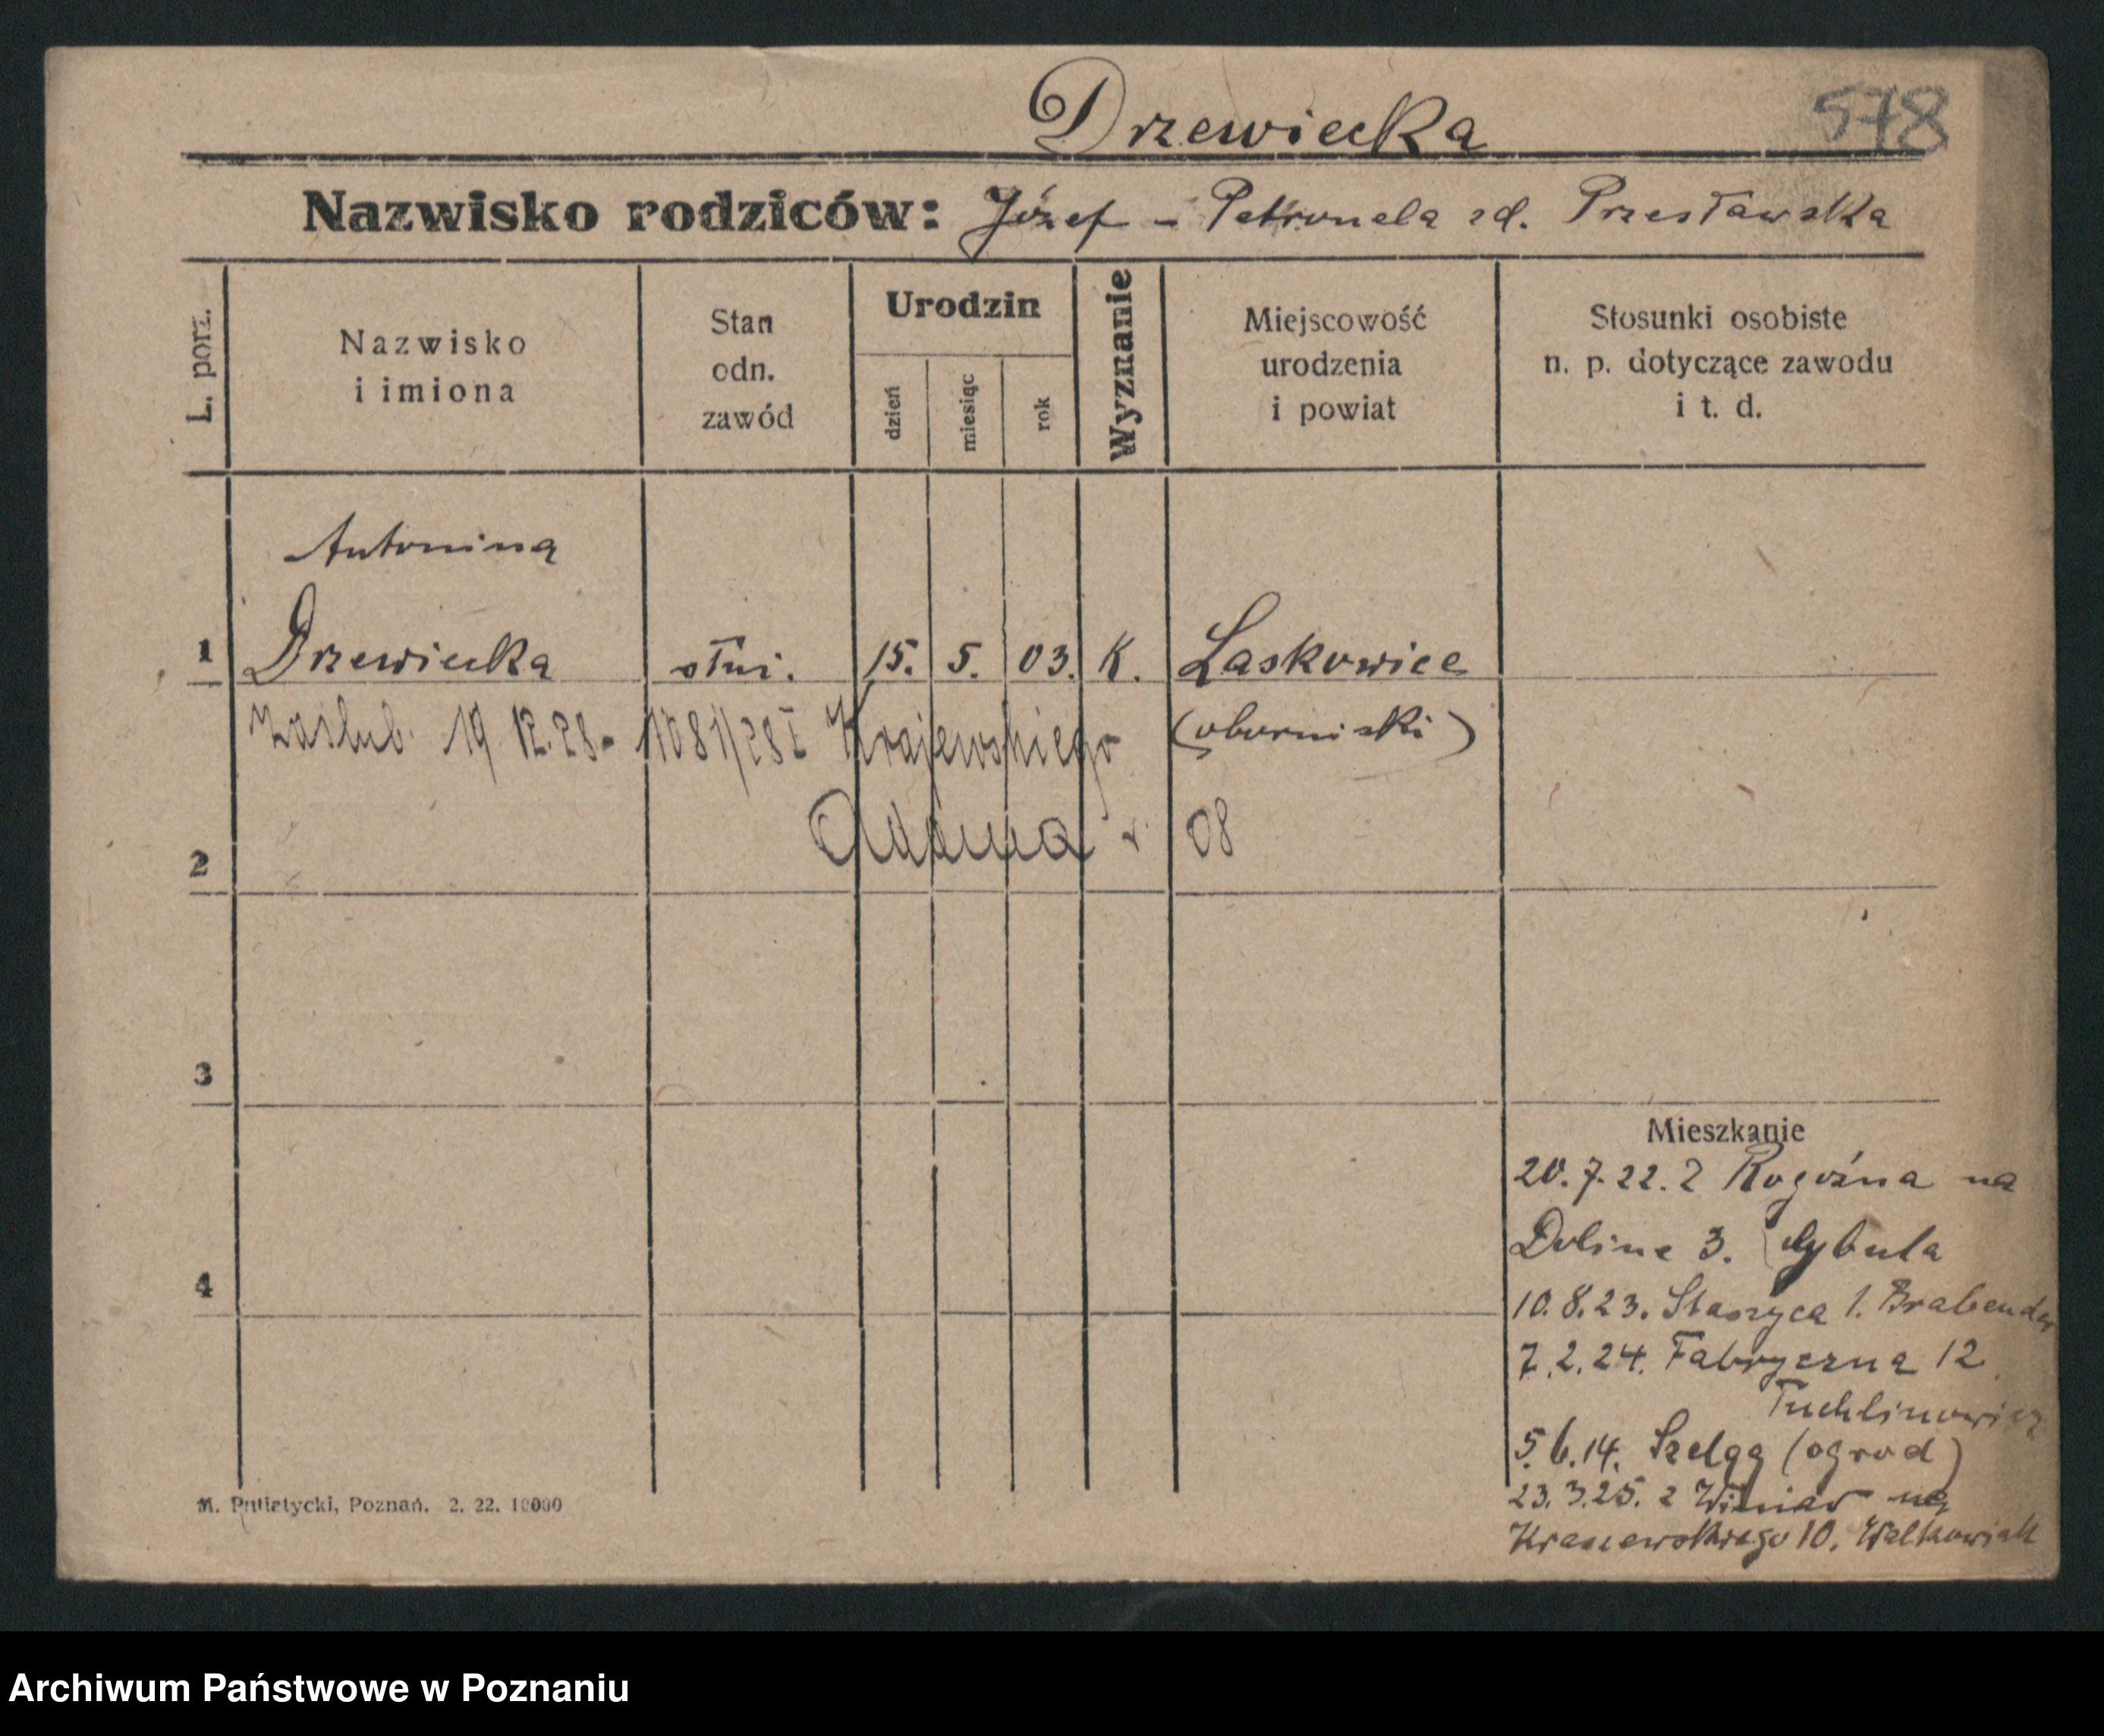 Drzewiecka
578
Nazwisko rodziców: Józef - Petronela zd. Przesławska
L. porz.
Nazwisko
i imiona
Stan
odn.
zawód
Urodzin
dzień
miesiąc
rok
Wyznanie
Miejscowość
urodzenia
i powiat
Stosunki osobiste
n. p. dotyczące zawodu
i t. d.
Antonina
1 Drzewiecka służ. 15. 5. 03. K. Laskowice
zaślub. 19 12.28. 1081/28 I Krajewskiego (oborniski)
Adama r. 08
2
3
4
Mieszkanie
20.7.22. z Rogoźna na
Dolinę 3. Cybula
10.8.23. Staszyca 1. Brabender
7.2.24. Fabryczna 12
Tuchlinowicz
5.6.14. Szeląg (ogrod)
23.3.25. z Winiar na
Kraszewskiego 10. Walkowiak
M. Putiatycki, Poznań. 2. 22. 10000
Archiwum Państwowe w Poznaniu